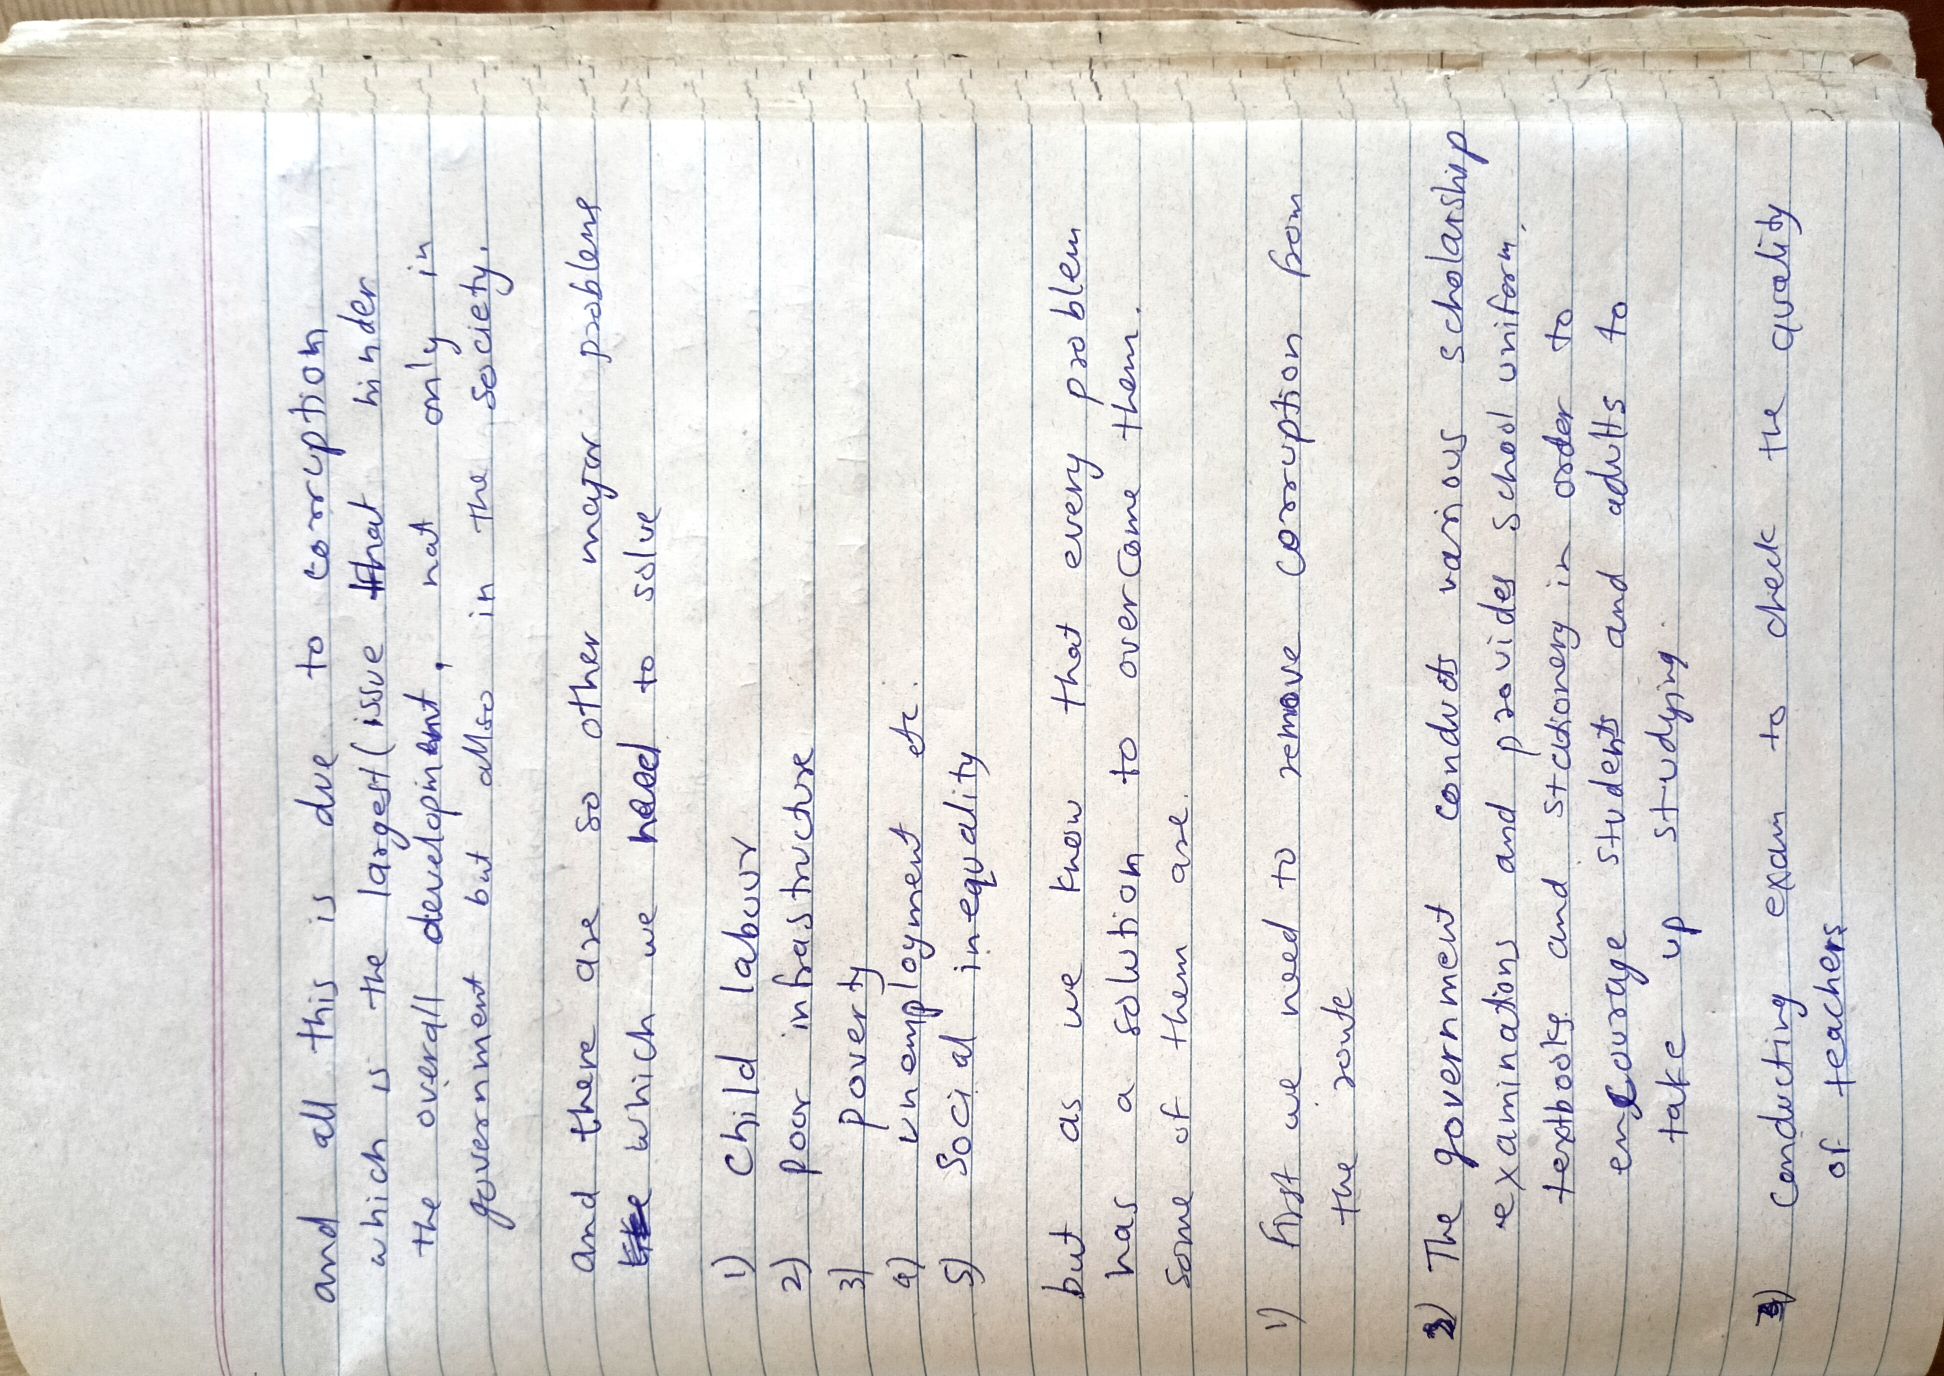 and all this is due to corruption
which is the largest (issue that hinder
the overall development, not only in
government but allso in the society.
And there are so other major problems
which we need to solve
1) Child labour
2) poor infrastructure
3) poverty
4) unemployment etc.
5) Social inequality
but as we know that every problem
has a solution to overcome them.
Some of them are.
1) First we need to remove corruption from
the route
2) The government conducts various scholarship
examinations and provides school uniform,
textbooks and stationery in order to
encourage students and adults to
take up studying.
3) Conducting exam to check the quality
of teachers